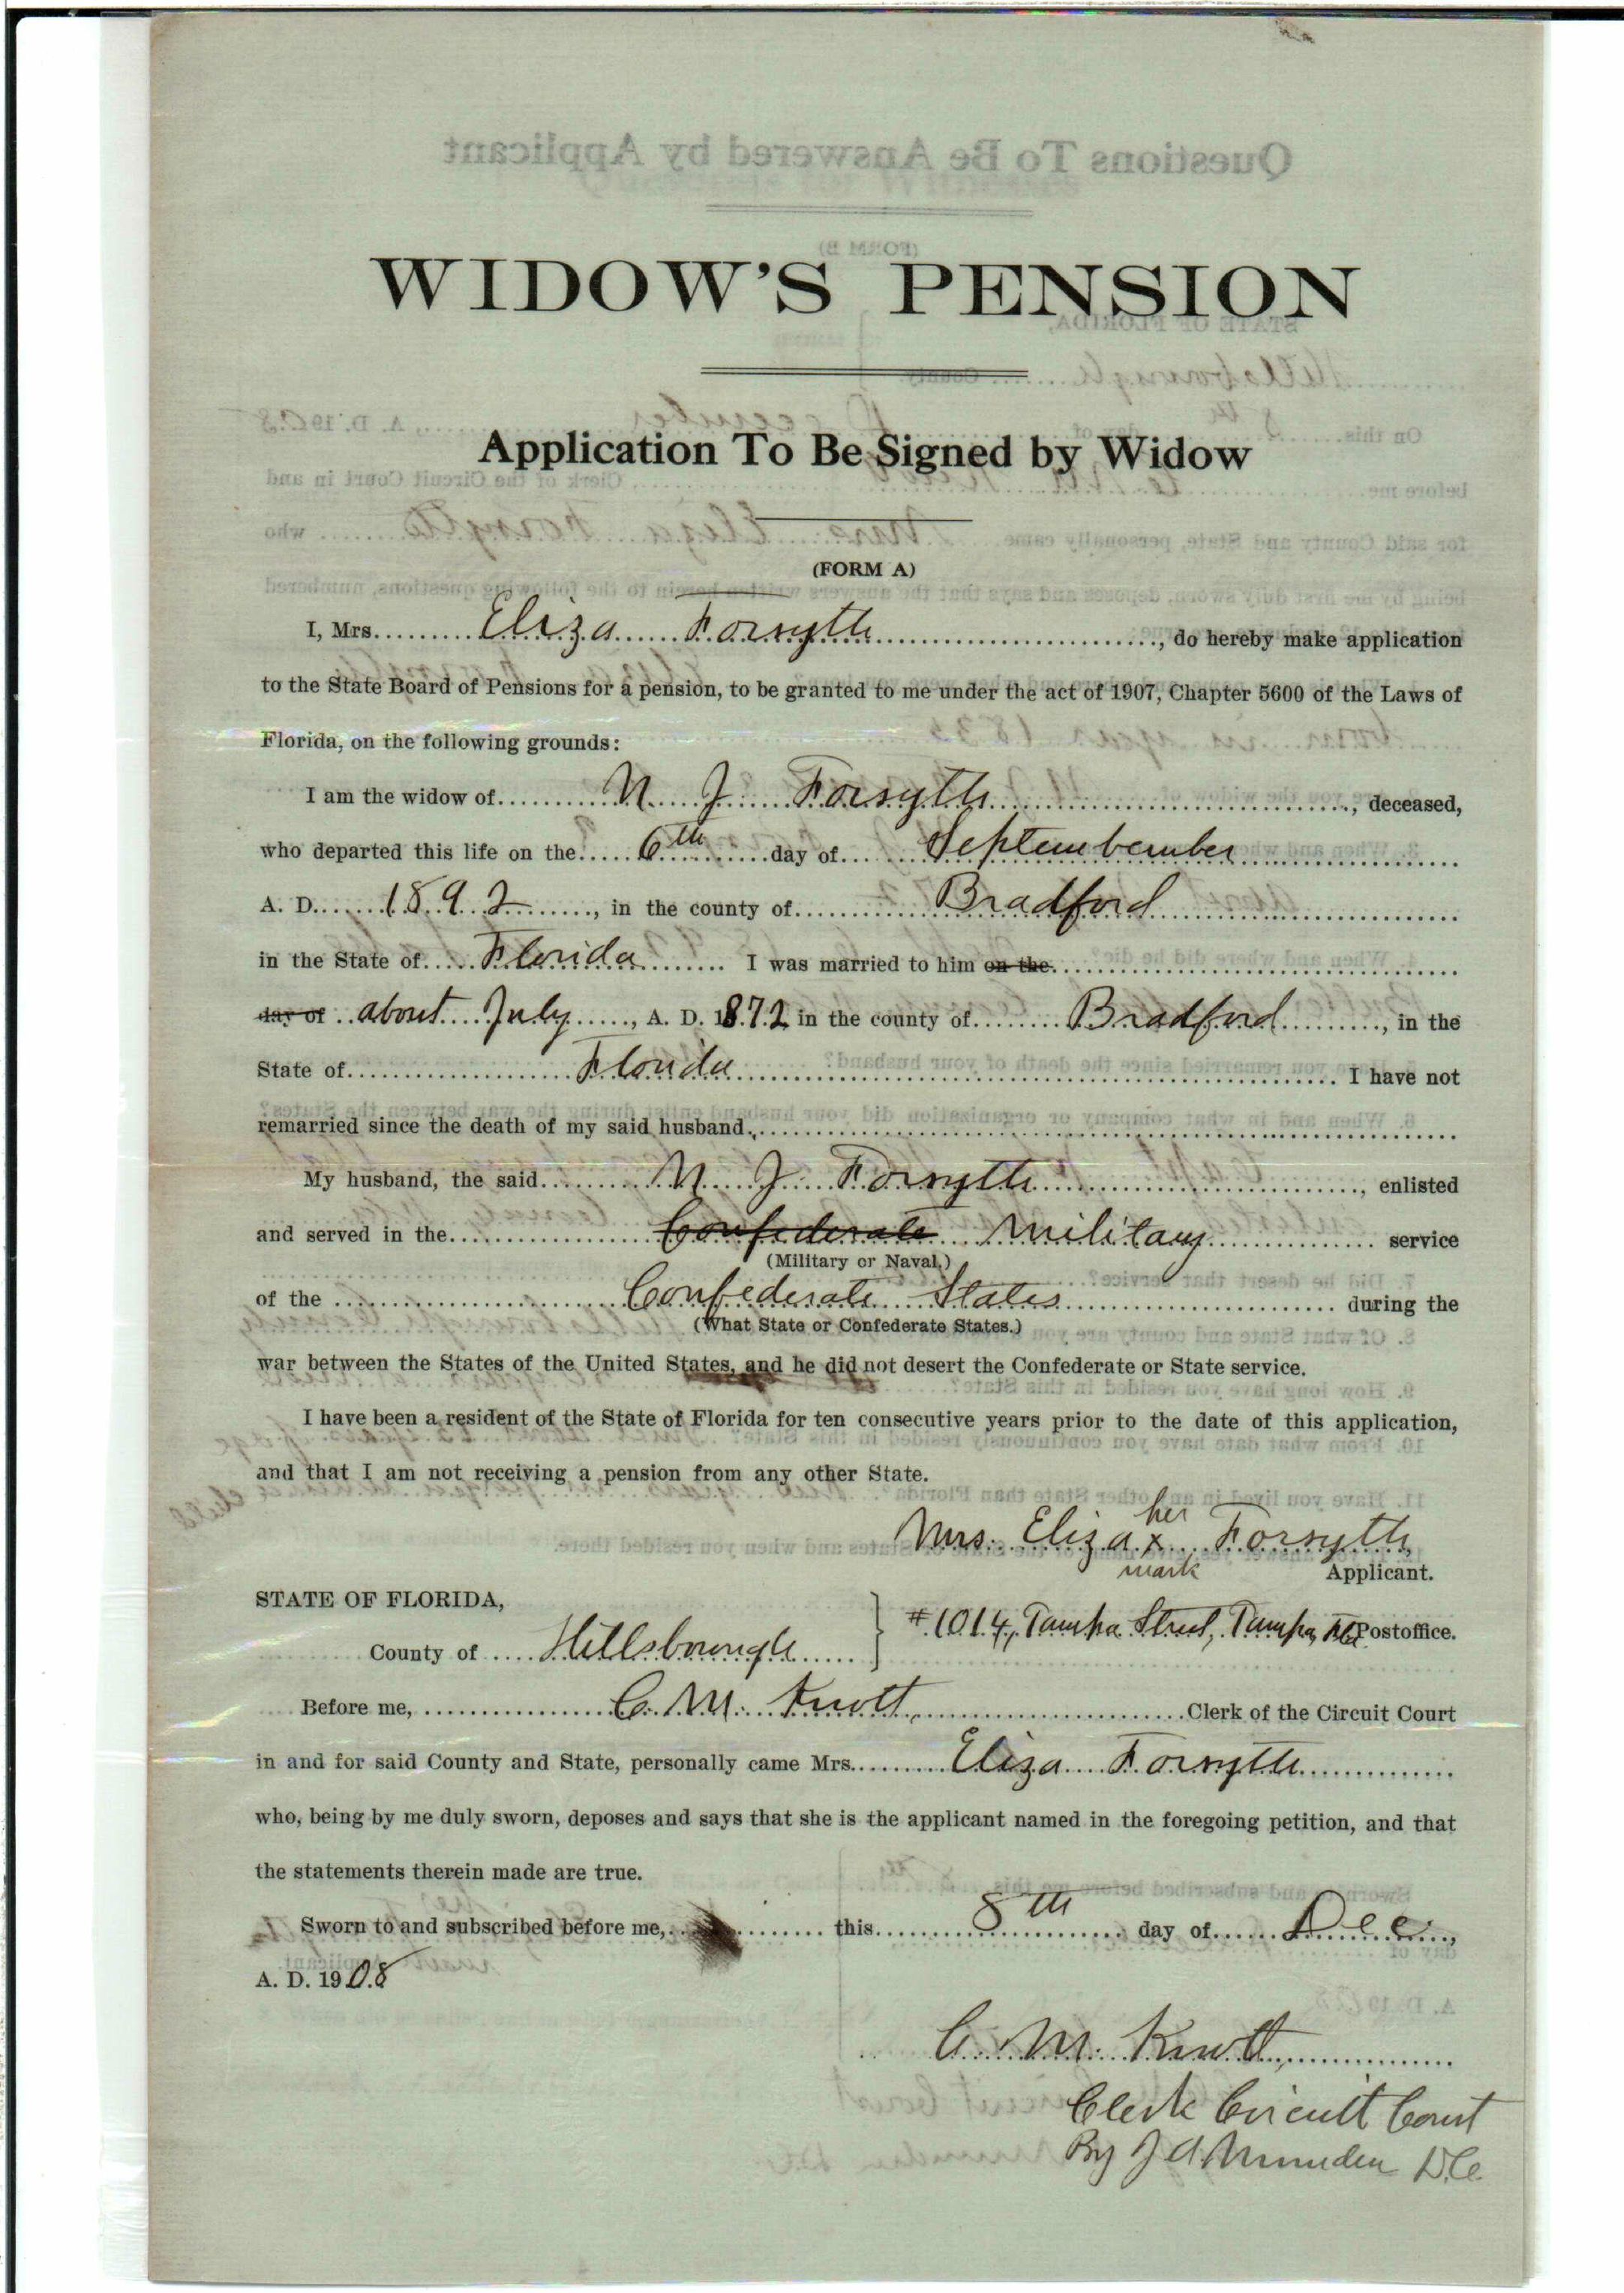 WIDOW'S PENSION
Application To Be Signed by Widow
(FORM A)
I, Mrs. Eliza Forsyth, do hereby make application
to the State Board of Pensions for a pension, to be granted to me under the act of 1907, Chapter 5600 of the Laws of
Florida, on the following grounds:
I am the widow of N J Forsyth, deceased,
who departed this life on the 6th day of Septembember
A. D. 1892, in the county of Bradford
in the State of Florida I was married to him on the
day of about July, A. D. 1872 in the county of Bradford, in the
State of Florida I have not
remarried since the death of my said husband.
My husband, the said N J Forsyth, enlisted
and served in the Confederate Military service
(Military or Naval.)
of the Confederate States during the
(What State or Confederate States.)
war between the States of the United States, and he did not desert the Confederate or State service.
I have been a resident of the State of Florida for ten consecutive years prior to the date of this application,
and that I am not receiving a pension from any other State.
her
Mrs. Eliza x Forsyth
mark Applicant.
STATE OF FLORIDA,
#1014, Tampa Street, Tampa, Fla Postoffice.
County of Hillsborough
Before me, C. M. Knott, Clerk of the Circuit Court
in and for said County and State, personally came Mrs. Eliza Forsyth
who, being by me duly sworn, deposes and says that she is the applicant named in the foregoing petition, and that
the statements therein made are true.
Sworn to and subscribed before me, this 8th day of Dec.,
A. D. 1908
C. M. Knott,
Clerk Circuit Court
By J A Mumden D.C.